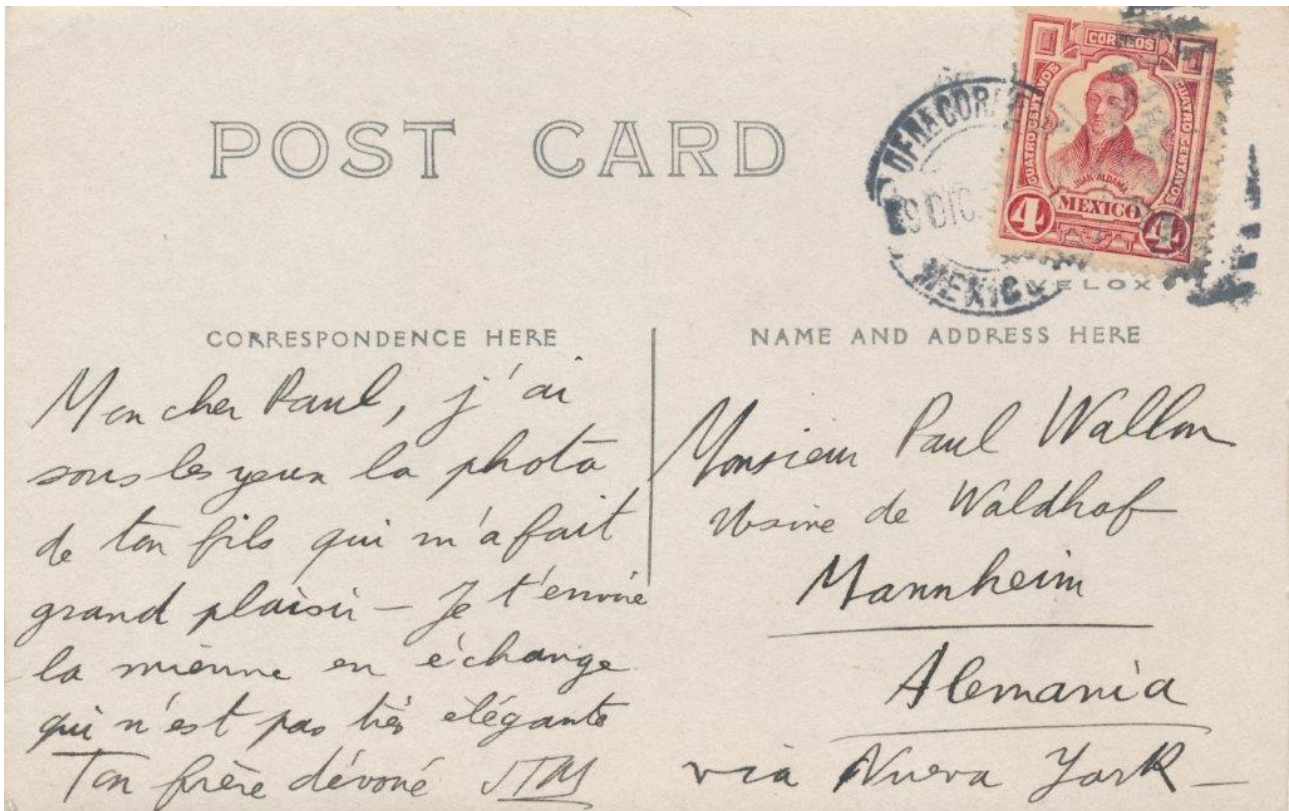 POST CARD
CORREOS
CUATRO CENTAVOS
CUATRO CENTAVOS
JUAN ALDAMA
4 MEXICO 4
9 DIC.
MEXICO
VELOX
CORRESPONDENCE HERE
Mon cher Paul, j'ai
sous les yeux la photo
de ton fils qui m'a fait
grand plaisir – Je t'envoie
la mienne en échange
qui n'est pas très élégante
Ton frère dévoué
NAME AND ADDRESS HERE
Monsieur Paul Wallon
Usine de Waldhof
Mannheim
Alemania
via Nueva York –